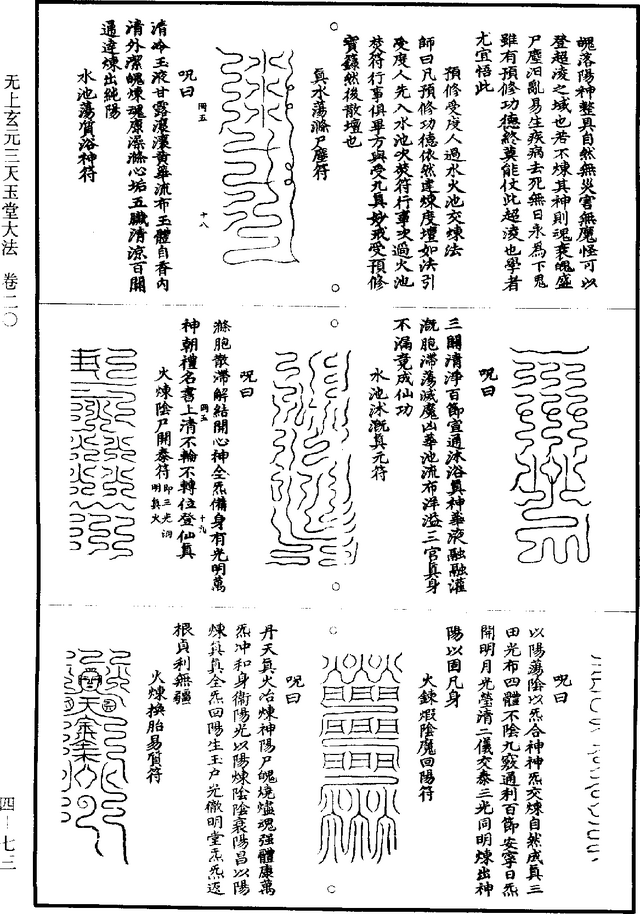 魄落陽神整具自然無災害無魔怪可以
登超淩之域也若不煉其神則魂衰魄盛
尸塵汩亂易生疾病去死無日永為下鬼
雖有預修功德終莫能仗此超淩也學者
尤宜悟此
預修受度人過水火池交煉法
師曰凡預修功德依然建煉度壇如法引
受度人先入水池次焚符行事次過火池
焚符行事俱畢方與受九真妙戒受預修
寶籙然後散壇也
真水蕩滌尸塵符
罔五
十八
呪曰
清冷玉液甘露瀼瀼黃華流布玉體自香內
清外潔魄煉魂康澡滌心垢五臟清涼百關
通達煉出純陽
水池蕩質浴神符
呪曰
三關清淨百節宣通沐浴真神華液融融灌
溉胞滯蕩滅魔凶華池流布洋溢三宮真身
不漏竟成仙功
水池沐溉真元符
呪曰
滌胞散滯解結開心神全炁備身有光明萬
神朝禮名書上清不輪不轉位登仙真
罔五
十九
火煉陰尸開泰符
即三光洞
明真火
呪曰
以陽蕩陰以炁合神神炁交煉自然成真三
田光布四體不陰九竅通利百節安寧日炁
開明月光瑩清二儀交泰三光同明煉出神
陽以固凡身
火鍊煆陰魔回陽符
呪曰
丹天真火冶煉神陽尸魄燒燼魂强體康萬
炁冲和身衛陽光以陽煉陰陰衰陽昌以陽
煉真真全炁回陽生玉户光徹明堂炁炁返
根貞利無疆
火煉換胎易質符
无上玄元三天玉堂大法 卷二〇
四—七三